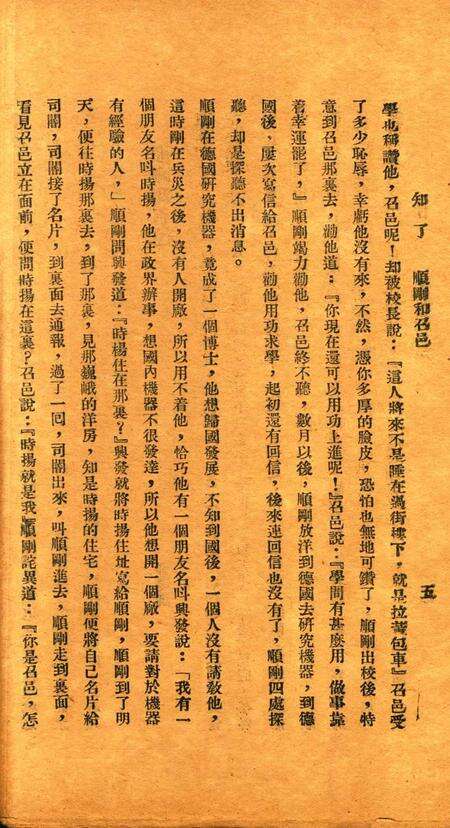 知了　順剛和召邑
五
學也稱讚他，召邑呢！却被校長說：『這人將來不是睡在過街樓下，就是拉黃包車』召邑受
了多少恥辱，幸虧他沒有來，不然，憑你多厚的臉皮，恐怕也無地可鑽了，順剛出校後，特
意到召邑那裏去，勸他道：『你現在還可以用功上進呢！』召邑說：『學問有甚麼用，做事靠
着幸運罷了，』順剛竭力勸他，召邑終不聽，數月以後，順剛放洋到德國去硏究機器，到德
國後，屢次寫信給召邑，勸他用功求學，起初還有回信，後來連回信也沒有了，順剛四處探
聽，却是探聽不出消息。
順剛在德國硏究機器，竟成了一個博士，他想歸國發展，不知到國後，一個人沒有請敎他，
這時剛在兵災之後，沒有人開廠，所以用不着他，恰巧他有一個朋友名叫興發說：「我有一
個朋友名叫時揚，他在政界辦事，想國內機器不很發達，所以他想開一個廠，要請對於機器
有經驗的人，」順剛問興發道：『時揚住在那裏？』興發就將時揚住址寫給順剛，順剛到了明
天，便往時揚那裏去，到了那裏，見那巍峨的洋房，知是時揚的住宅，順剛便將自己名片給
司閽，司閽接了名片，到裏面去通報，過了一回，司閽出來，叫順剛進去，順剛走到裏面，
看見召邑立在面前，便問時揚在這裏？召邑說：『時揚就是我』順剛詫異道：『你是召邑，怎